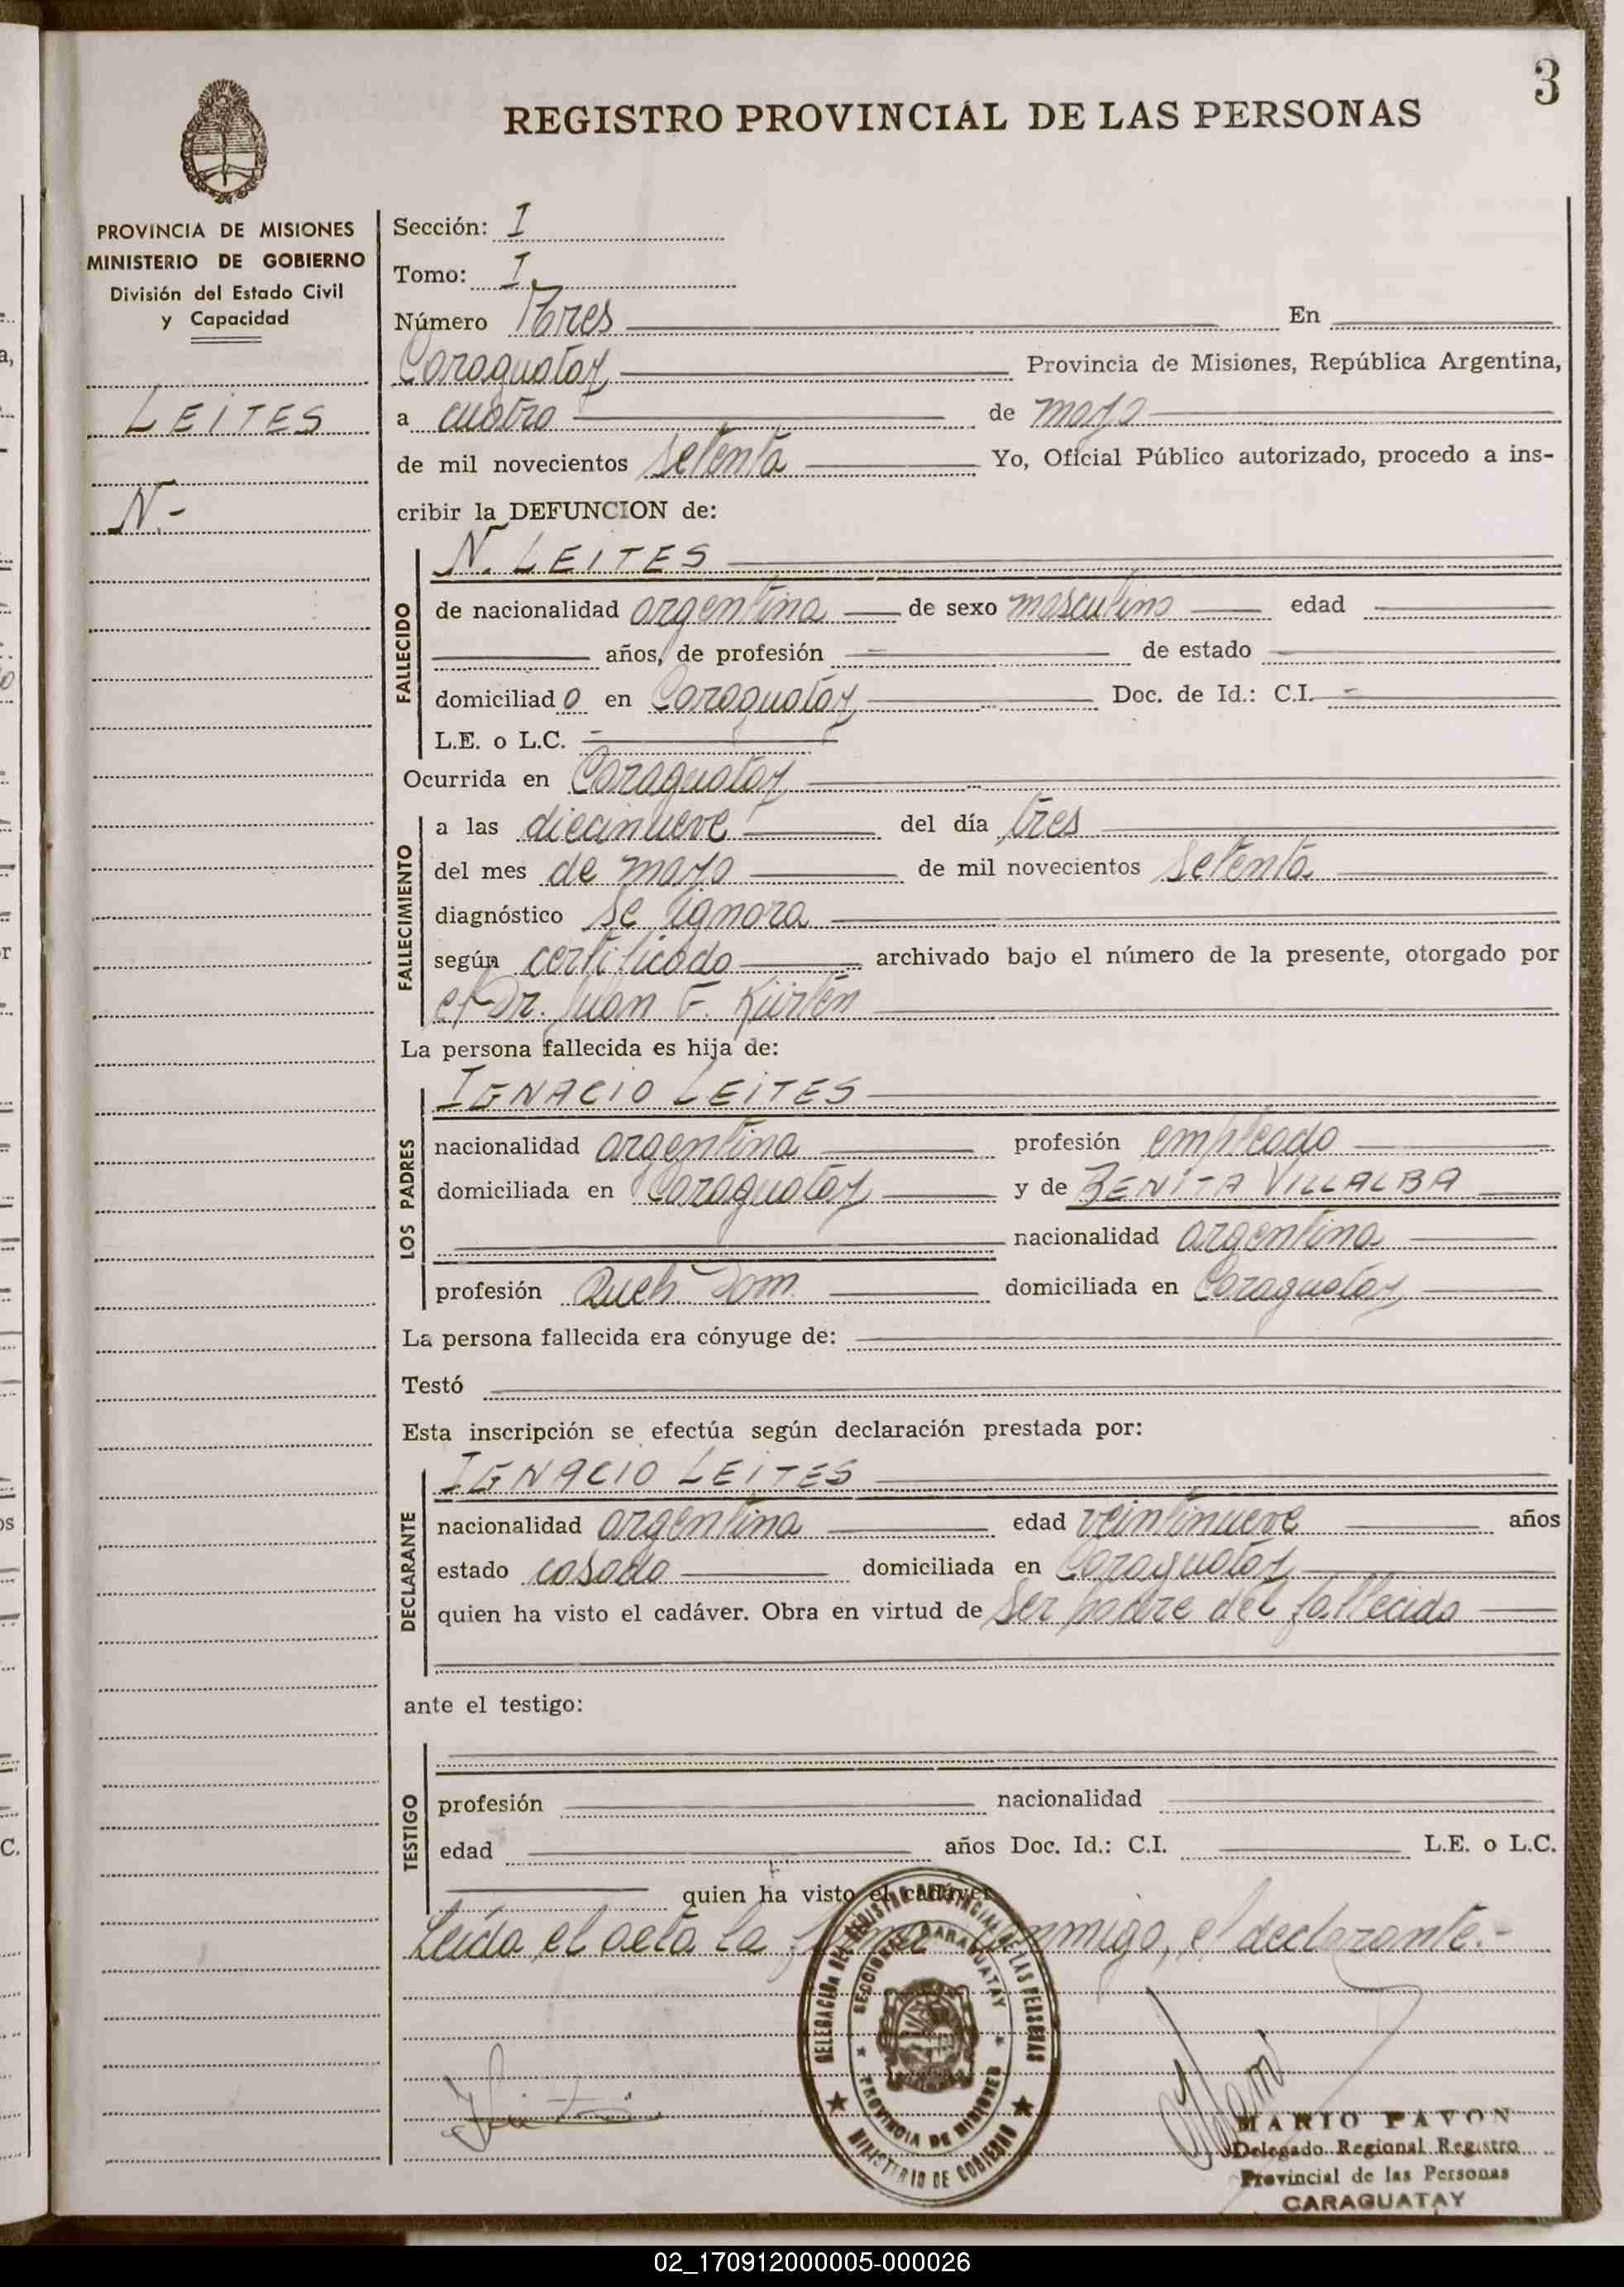 3
REGISTRO PROVINCIAL DE LAS PERSONAS
PROVINCIA DE MISIONES
MINISTERIO DE GOBIERNO
División del Estado Civil
y Capacidad
LEITES
N.-
Sección: I
Tomo: I
Número Tres En
Caraguatay Provincia de Misiones, República Argentina,
a cuatro de mayo
de mil novecientos setenta Yo, Oficial Público autorizado, procedo a ins-
cribir la DEFUNCION de:
FALLECIDO
N. LEITES
de nacionalidad argentina de sexo masculino edad
años, de profesión de estado
domiciliado en Caraguatay Doc. de Id.: C.I. -
L.E. o L.C. -
Ocurrida en Caraguatay
FALLECIMIENTO
a las diecinueve del día tres
del mes de mayo de mil novecientos setenta
diagnóstico se ignora
según certificado archivado bajo el número de la presente, otorgado por
el Dr. Juan F. Kürten
La persona fallecida es hija de:
LOS PADRES
IGNACIO LEITES
nacionalidad argentina profesión empleado
domiciliada en Caraguatay y de BENITA VILLALBA
nacionalidad argentina
profesión Queh Dom. domiciliada en Caraguatay
La persona fallecida era cónyuge de:
Testó
Esta inscripción se efectúa según declaración prestada por:
DECLARANTE
IGNACIO LEITES
nacionalidad argentina edad veintinueve años
estado casado domiciliada en Caraguatay
quien ha visto el cadáver. Obra en virtud de ser padre del fallecido
ante el testigo:
TESTIGO
profesión nacionalidad
edad años Doc. Id.: C.I. L.E. o L.C.
quien ha visto el cadáver
Leída el acta la firma conmigo, el declarante.-
DELEGACION DEL REGISTRO PROVINCIAL DE LAS PERSONAS
SECCION CARAGUATAY
PROVINCIA DE MISIONES
MINISTERIO DE GOBIERNO
MARIO PAVON
Delegado Regional Registro
Provincial de las Personas
CARAGUATAY
02_170912000005-000026